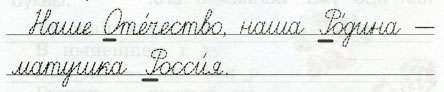 Наше Оте́чество, наша Ро́дина —
матушка Росси́я.